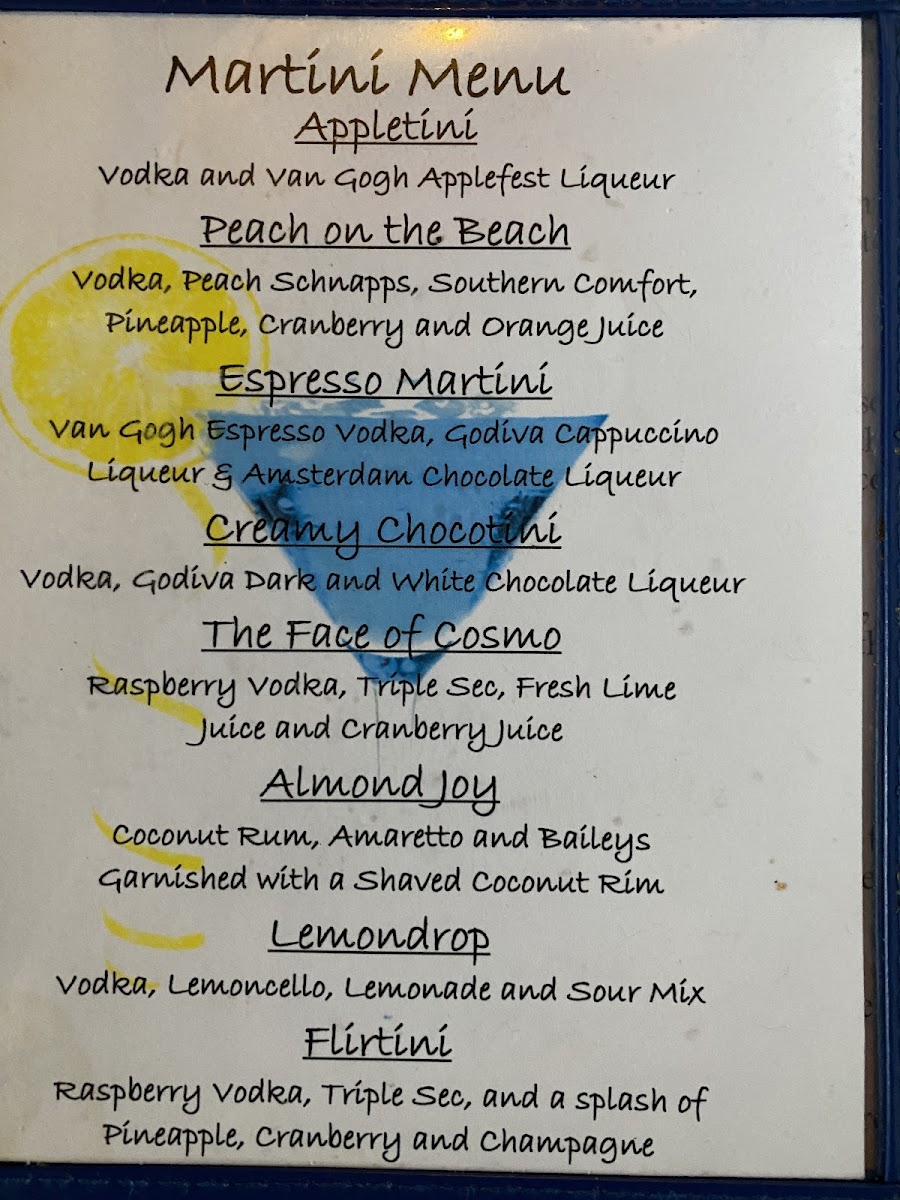 Martini Menu
Appletini
Vodka and Van Gogh Applefest Liqueur
Peach on the Beach
Vodka, Peach Schnapps, Southern Comfort,
Pineapple, Cranberry and Orange Juice
Espresso Martini
Van Gogh Espresso Vodka, Godiva Cappuccino
Liqueur & Amsterdam Chocolate Liqueur
Creamy Chocotini
Vodka, Godiva Dark and White Chocolate Liqueur
The Face of Cosmo
Raspberry Vodka, Triple Sec, Fresh Lime
Juice and Cranberry Juice
Almond Joy
Coconut Rum, Amaretto and Baileys
Garnished with a Shaved Coconut Rim
Lemondrop
Vodka, Lemoncello, Lemonade and Sour Mix
Flirtini
Raspberry Vodka, Triple Sec, and a splash of
Pineapple, Cranberry and Champagne